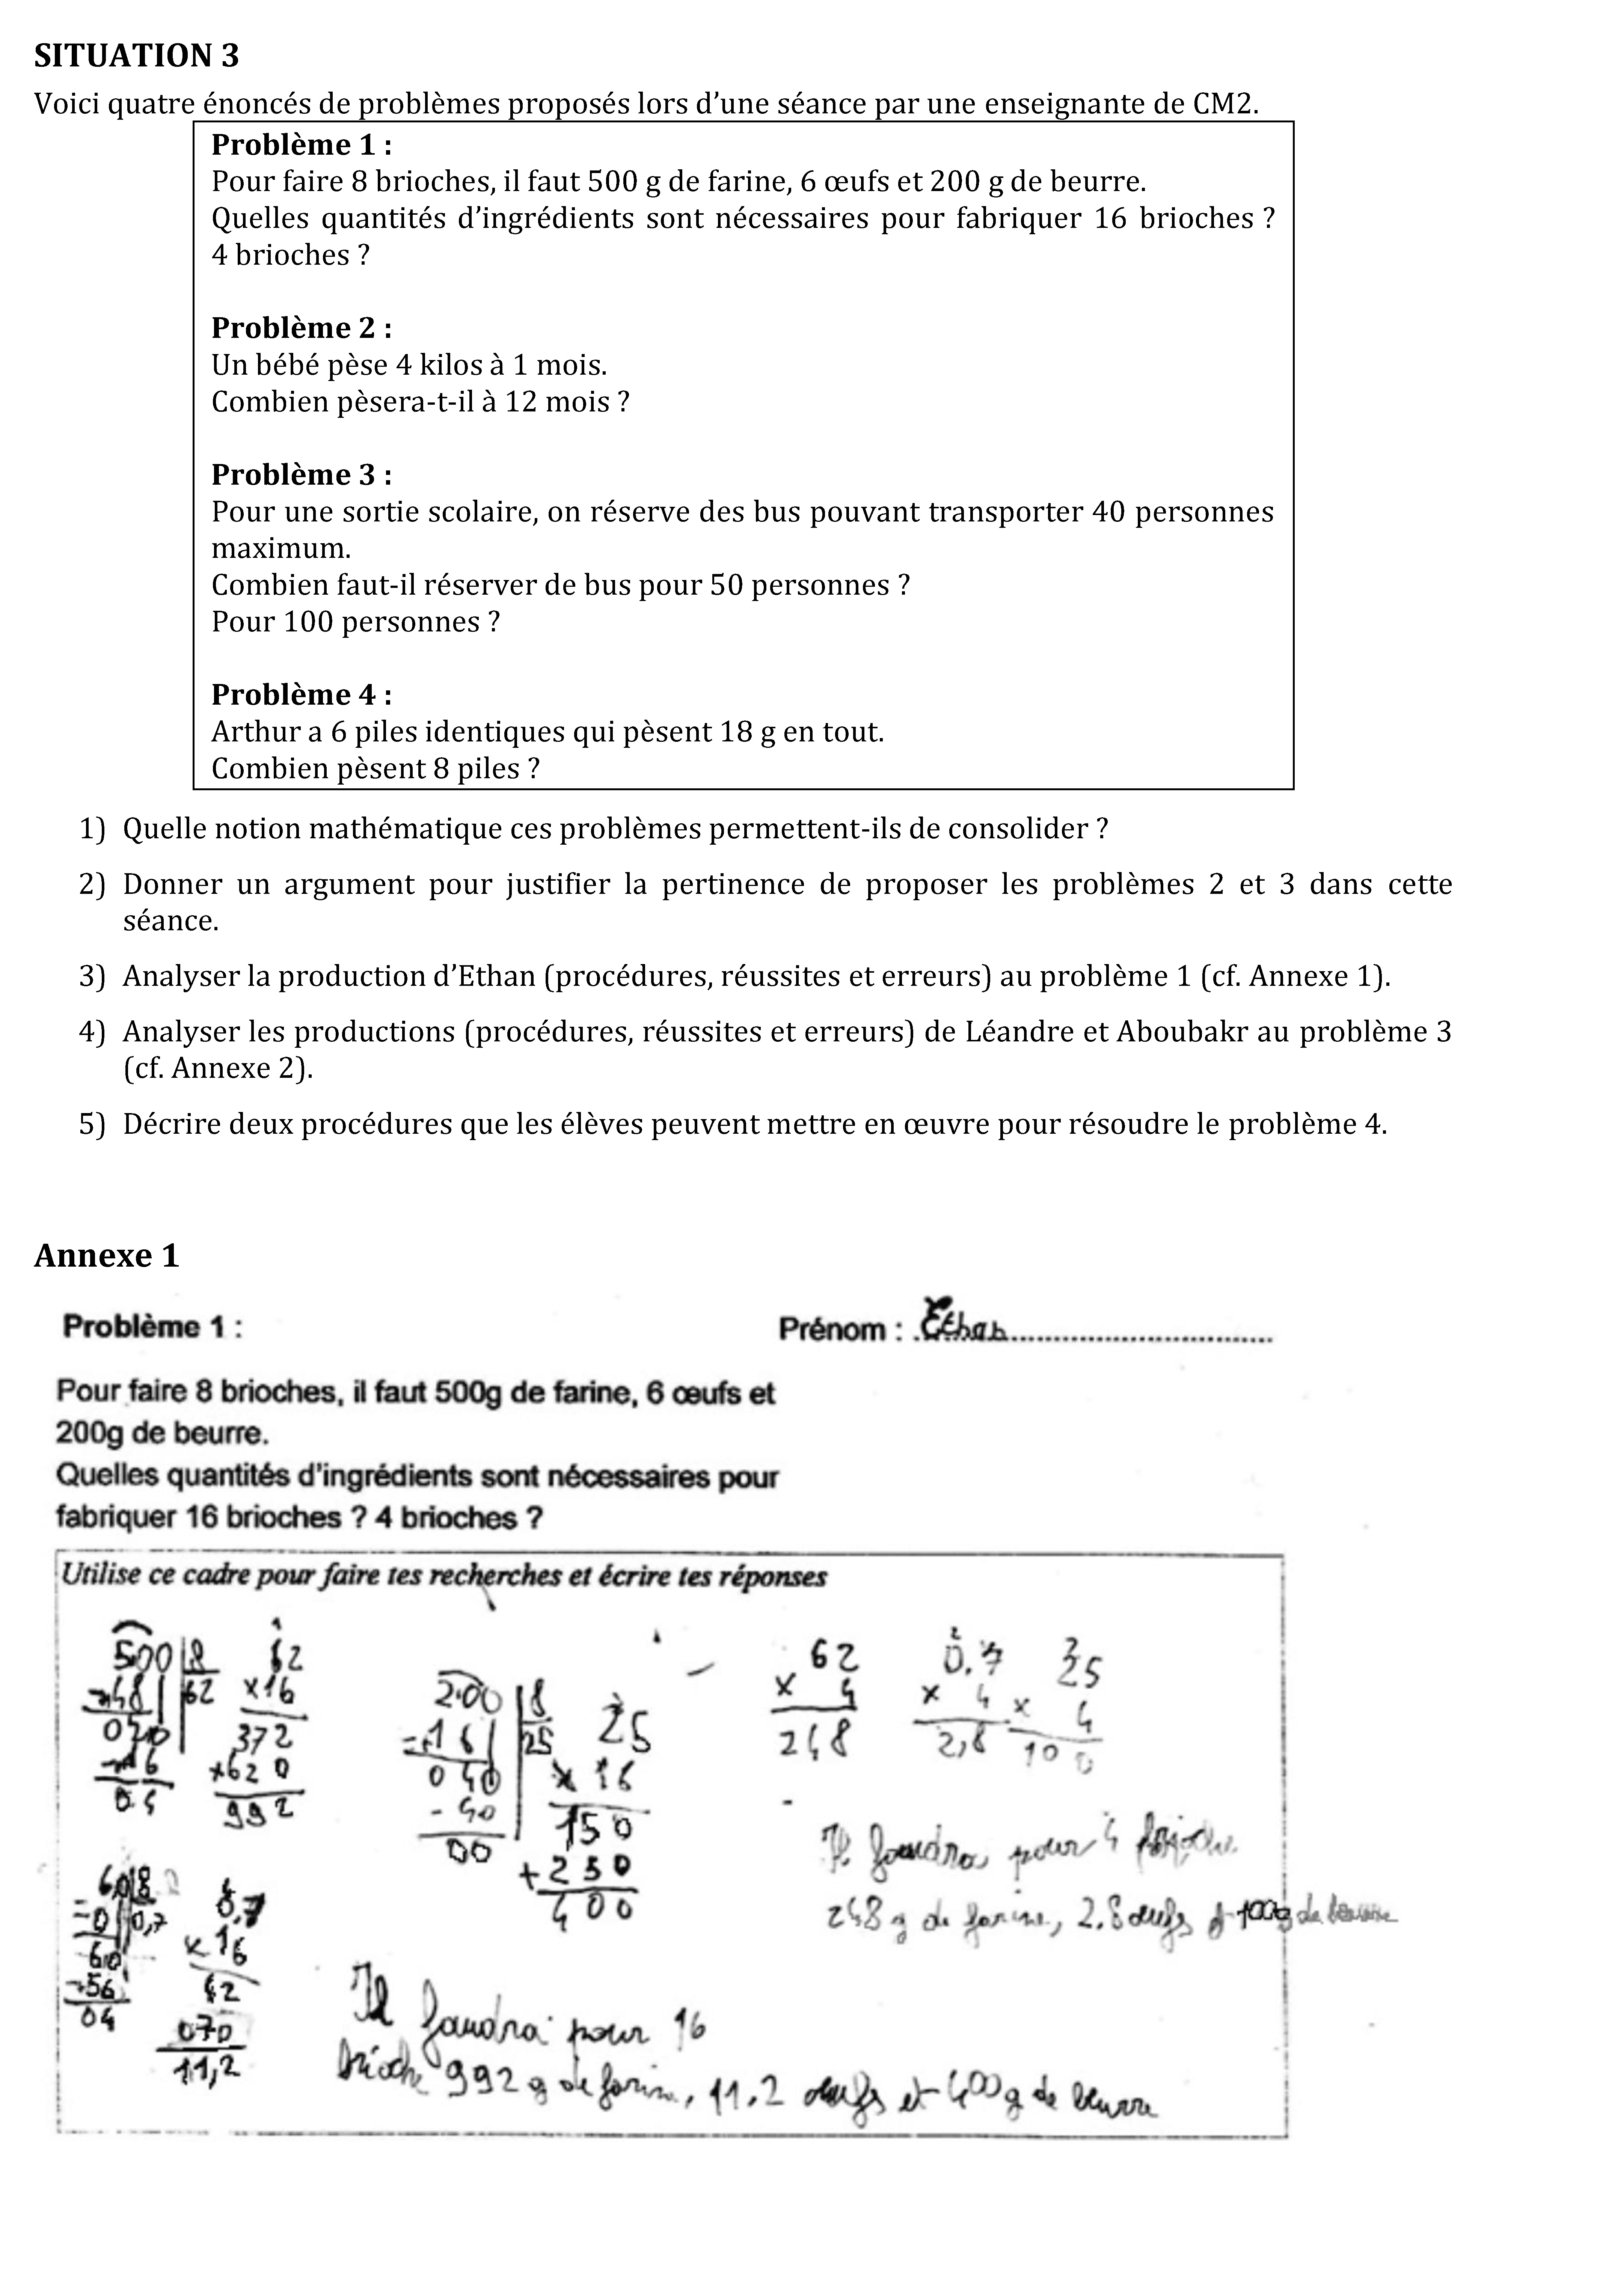 SITUATION 3
Voici quatre énoncés de problèmes proposés lors d'une séance par une enseignante de CM2.
Problème 1 :
Pour faire 8 brioches, il faut 500 g de farine, 6 œufs et 200 g de beurre.
Quelles quantités d'ingrédients sont nécessaires pour fabriquer 16 brioches ?
4 brioches ?
Problème 2 :
Un bébé pèse 4 kilos à 1 mois.
Combien pèsera-t-il à 12 mois ?
Problème 3 :
Pour une sortie scolaire, on réserve des bus pouvant transporter 40 personnes
maximum.
Combien faut-il réserver de bus pour 50 personnes ?
Pour 100 personnes ?
Problème 4 :
Arthur a 6 piles identiques qui pèsent 18 g en tout.
Combien pèsent 8 piles ?
1) Quelle notion mathématique ces problèmes permettent-ils de consolider ?
2) Donner un argument pour justifier la pertinence de proposer les problèmes 2 et 3 dans cette
séance.
3) Analyser la production d'Ethan (procédures, réussites et erreurs) au problème 1 (cf. Annexe 1).
4) Analyser les productions (procédures, réussites et erreurs) de Léandre et Aboubakr au problème 3
(cf. Annexe 2).
5) Décrire deux procédures que les élèves peuvent mettre en œuvre pour résoudre le problème 4.
Annexe 1
Problème 1 :
Prénom : Ethan
Pour faire 8 brioches, il faut 500g de farine, 6 œufs et
200g de beurre.
Quelles quantités d'ingrédients sont nécessaires pour
fabriquer 16 brioches ? 4 brioches ?
Utilise ce cadre pour faire tes recherches et écrire tes réponses
500 8
-48 62
020
-16
04
62
x16
372
+620
992
200 8
-16 25
040
-40
00
25
x 16
150
+250
400
62
x 4
248
0,7
x 4
2,8
25
x 4
100
60 8
-0 0,7
60
-56
04
0,7
x 16
42
070
11,2
Il faudra pour 4 brioche
248 g de farine, 2.8 œufs et 100g de beurre
Il faudra pour 16
brioche 992 g de farine, 11.2 œufs et 400g de beurre